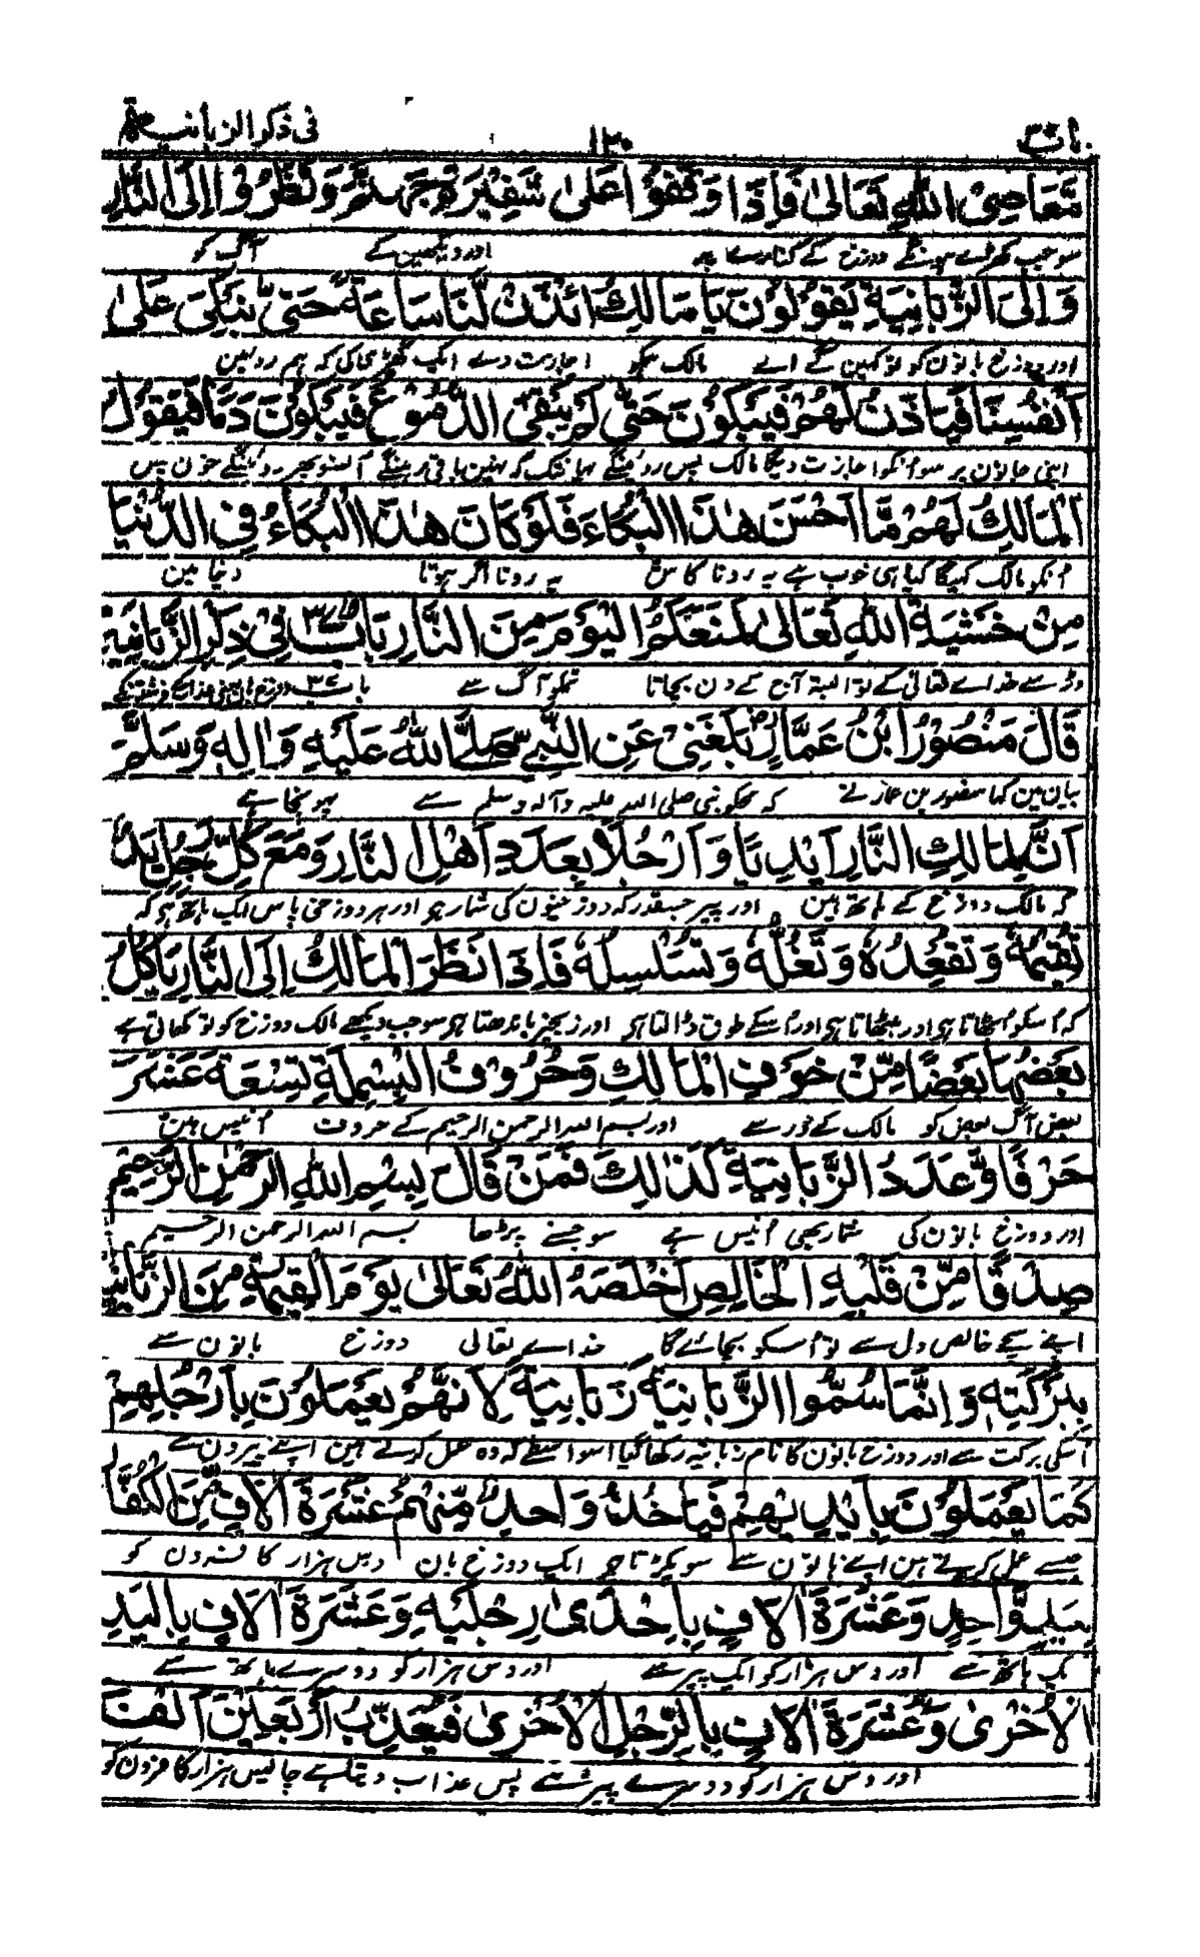 باب ٣٧ ١٣٠ فی ذکر الزبانیة
مَعَاصِی اللّٰهِ تَعَالٰی فَاِذَا وَقَفُوْا عَلٰی شَفِیْرِ جَهَنَّمَ وَنَظَرُوْا اِلَی النَّارِ
سو جب کھڑے ہونگے دوزخ کے کنارے پر اور دیکھین کے آگ کو
وَاِلَی الزَّبَانِیَةِ یَقُوْلُوْنَ یَا مَالِكُ ائْذَنْ لَّنَا سَاعَةً حَتّٰی نَبْكِیَ عَلٰی
اور دوزخ بانون کو تو کہین گے اے مالک ہمکو اجازت دے ایک گھڑی کی کہ ہم روئین
اَنْفُسِنَا فَیَاْذَنُ لَهُمْ فَیَبْكُوْنَ حَتّٰی لَمْ یَبْقَ الدُّمُوْعُ فَیَبْكُوْنَ دَمًا فَیَقُوْلُ
اپنی جانون پر سو انکو اجازت دیگا مالک پس روئینگے یہانتک کہ نہین باقی رہینگے آنسو پھر روئینگے خون پس
الْمَالِكُ لَهُمْ مَّا اَحْسَنَ هٰذَا الْبُكَاءَ فَلَوْ كَانَ هٰذَا الْبُكَاءُ فِی الدُّنْیَا
انکو مالک کہیگا کیا ہی خوب ہے یہ رونا کاش یہ رونا اگر ہوتا دنیا مین
مِنْ خَشْیَةِ اللّٰهِ تَعَالٰی لَمَنَعَكُمُ الْیَوْمَ مِنَ النَّارِ بَابُ ٣٧ فِیْ ذِكْرِ الزَّبَانِیَةِ
ڈر سے خداے تعالی کے تو البتہ آج کے دن بچاتا تمکو آگ سے باب ٣٧ دوزخ بان یعنی عذاب کے فرشتون کے
قَالَ مَنْصُوْرُ ابْنُ عَمَّارٍ بَلَغَنِیْ عَنِ النَّبِیِّ صَلَّی اللّٰهُ عَلَیْهِ وَاٰلِهٖ وَسَلَّمَ
بیان مین کہا منصور بن عمار نے کہ مجکو نبی صلی اللہ علیہ وآلہ وسلم سے پہونچا ہے
اَنَّ لِمَالِكِ النَّارِ اَیْدِیًا وَاَرْجُلًا بِعَدَدِ اَهْلِ النَّارِ وَمَعَ كُلِّ رَجُلٍ یَدٌ
کہ مالک دوزخ کے ہاتھ ہین اور پیر جسقدر کہ دوزخیون کی شمار ہو اور ہر دوزخی پاس ایک ہاتھ ہو کہ
تُقِیْمُهٗ وَتُقْعِدُهٗ وَتَغُلُّهٗ وَتُسَلْسِلُهٗ فَاِذَا نَظَرَ الْمَالِكُ اِلَی النَّارِ یَاْكُلُ
کہ اسکو اٹھاتا ہو اور بیٹھاتا ہو اور اسکے طوق ڈالتا ہو اور زنجیر باندھتا ہو سو جب دیکھے مالک دوزخ کو تو کھاتی ہے
بَعْضُهَا بَعْضًا مِّنْ خَوْفِ الْمَالِكِ وَحُرُوْفُ الْبَسْمِلَةِ تِسْعَةَ عَشَرَ
بعض آگ بعض کو مالک کے ڈر سے اور بسم اللہ الرحمن الرحیم کے حروف انیس ہین
حَرْفًا وَّعَدَدُ الزَّبَانِیَةِ كَذٰلِكَ فَمَنْ قَالَ بِسْمِ اللّٰهِ الرَّحْمٰنِ الرَّحِیْمِ
اور دوزخ بانون کی شمار بھی انیس ہے سو جسنے پڑھا بسم اللہ الرحمن الرحیم
صِدْقًا مِّنْ قَلْبِهِ الْخَالِصِ اَخْلَصَهُ اللّٰهُ تَعَالٰی یَوْمَ الْقِیٰمَةِ مِنَ الزَّبَانِیَةِ
اپنے سچے خالص دل سے تو اسکو بچائے گا خداے تعالی دوزخ بانون سے
بِبَرَكَتِهٖ وَاِنَّمَا سُمُّوا الزَّبَانِیَةُ زَبَانِیَةً لِاَنَّهُمْ یَعْمَلُوْنَ بِاَرْجُلِهِمْ
اسکی برکت سے اور دوزخ بانون کا نام زبانیہ رکھا گیا اسواسطے کہ وہ عمل کرتے ہین اپنے پیرون سے
كَمَا یَعْمَلُوْنَ بِاَیْدِیْهِمْ فَیَاْخُذُ وَاحِدٌ مِّنْهُمْ عَشَرَةَ اٰلَافٍ مِّنَ الْكُفَّارِ
جیسے عمل کرتے ہین اپنے ہاتون سے سو پکڑتا ہے ایک دوزخ بان دس ہزار کافرون کو
بِیَدٍ وَّاحِدٍ وَعَشَرَةَ اٰلَافٍ بِاِحْدٰی رِجْلَیْهِ وَعَشَرَةَ اٰلَافٍ بِالْیَدِ
ایک ہاتھ سے اور دس ہزار کو ایک پیر سے اور دس ہزار کو دوسرے ہاتھ سے
الْاُخْرٰی وَعَشَرَةَ اٰلَافٍ بِالرِّجْلِ الْاُخْرٰی فَیُعَذِّبُ اَرْبَعِیْنَ اَلْفَ
اور دس ہزار کو دوسرے پیر سے پس عذاب دیتا ہے چالیس ہزار کافرون کو